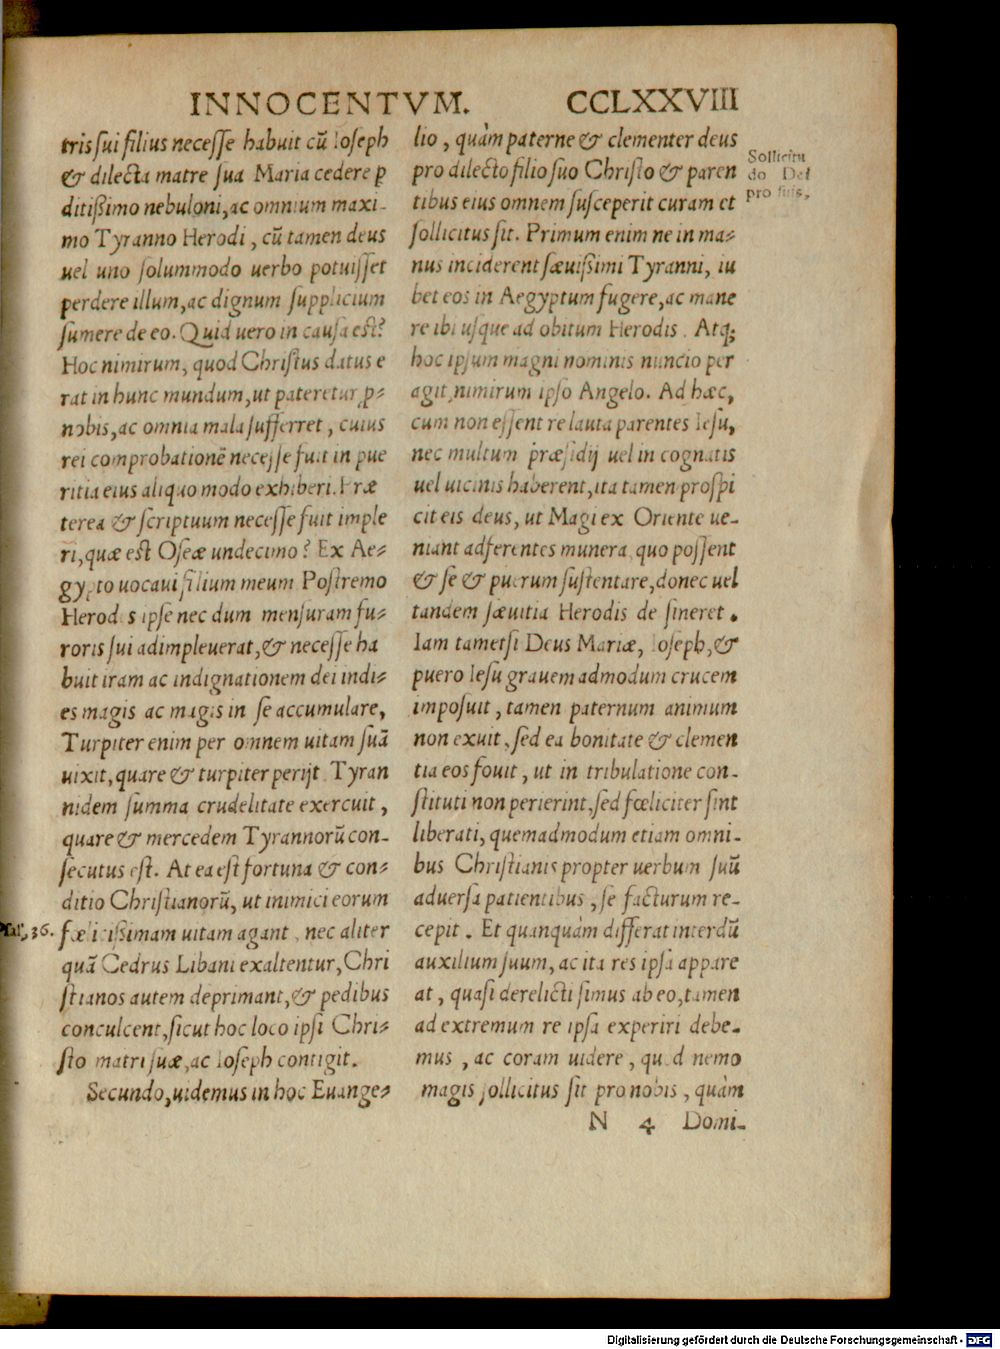 INNOCENTVM. CCLXXVIII
tris sui filius necesse habuit cũ Ioseph
& dilecta matre sua Maria cedere p̱
ditißimo nebuloni, ac omnium maxi-
mo Tyranno Herodi, cũ tamen deus
uel uno solummodo uerbo potuisset
perdere illum, ac dignum supplicium
sumere de eo. Quid uero in causa est?
Hoc nimirum, quod Christus datus e
rat in hunc mundum, ut pateretur p-
nobis, ac omnia mala sufferret, cuius
rei comprobationẽ necesse fuit in pue
ritia eius aliquo modo exhiberi. Præ
terea & scriptuum necesse fuit imple
ri, quæ est Oseæ undecimo? Ex Ae-
gypto uocaui filium meum Postremo
Herodes ipse nec dum mensuram fu-
roris sui adimpleuerat, & necesse ha
buit iram ac indignationem dei indi-
es magis ac magis in se accumulare,
Turpiter enim per omnem uitam suã
uixit, quare & turpiter perijt. Tyran
nidem summa crudelitate exercuit,
quare & mercedem Tyrannorũ con-
secutus est. At ea est fortuna & con-
ditio Christianorũ, ut inimici eorum
fœlicißimam uitam agant, nec aliter
quã Cedrus Libani exaltentur, Chri
stianos autem deprimant, & pedibus
conculcent, sicut hoc loco ipsi Chri-
sto matri suæ, ac Ioseph contigit.
Secundo, uidemus in hoc Euange-
36.
lio, quàm paterne & clementer deus
pro dilecto filio suo Christo & paren
tibus eius omnem susceperit curam et
sollicitus sit. Primum enim ne in ma-
nus inciderent sæuißimi Tyranni, iu
bet eos in Aegyptum fugere, ac mane
re ibi usque ad obitum Herodis. Atq;
hoc ipsum magni nominis nuncio per
agit, nimirum ipso Angelo. Ad hæc,
cum non essent re lauta parentes Iesu,
nec multum præsidij uel in cognatis
uel uicinis haberent, ita tamen prospi
cit eis deus, ut Magi ex Oriente ue-
niant adferentes munera quo possent
& se & puerum sustentare, donec uel
tandem sæuitia Herodis de sineret.
Iam tametsi Deus Mariæ, Ioseph, &
puero Iesu grauem admodum crucem
imposuit, tamen paternum animum
non exuit, sed ea bonitate & clemen
tia eos fouit, ut in tribulatione con-
stituti non perierint, sed fœliciter sint
liberati, quemadmodum etiam omni-
bus Christianis propter uerbum suũ
aduersa patientibus, se facturum re-
cepit. Et quanquàm differat interdũ
auxilium suum, ac ita res ipsa appare
at, quasi derelicti simus ab eo, tamen
ad extremum re ipsa experiri debe-
mus, ac coram uidere, quod nemo
magis sollicitus sit pro nobis, quàm
Sollicitu
do Dei
pro suis,
N 4 Domi-
Digitalisierung gefördert durch die Deutsche Forschungsgemeinschaft - DFG